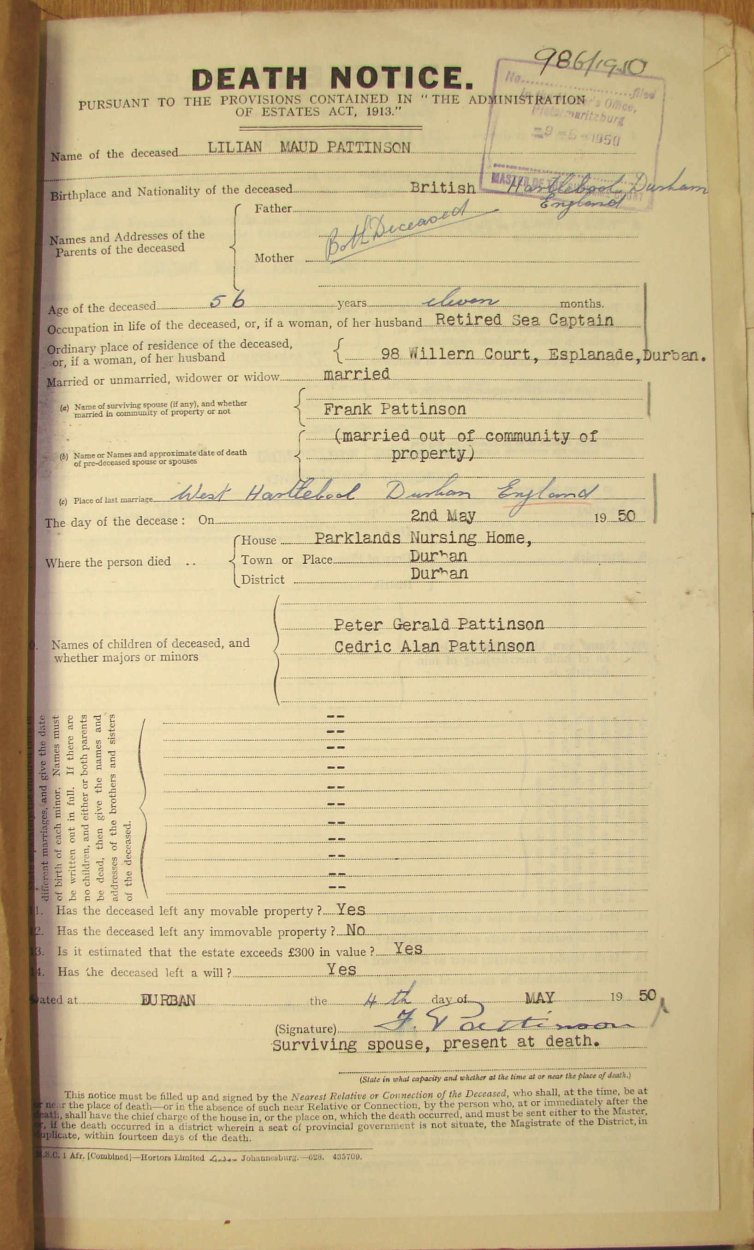 986/1950
DEATH NOTICE.
PURSUANT TO THE PROVISIONS CONTAINED IN "THE ADMINISTRATION
OF ESTATES ACT, 1913."
No. filed
Office,
Pietermaritzburg
-9-5-1950
Name of the deceased LILIAN MAUD PATTINSON
Birthplace and Nationality of the deceased British Hartlebool, Durham
England
Names and Addresses of the
Parents of the deceased
Father
Both Deceased
Mother
Age of the deceased 56 years eleven months.
Occupation in life of the deceased, or, if a woman, of her husband Retired Sea Captain
Ordinary place of residence of the deceased,
or, if a woman, of her husband 98 Willern Court, Esplanade, Durban.
Married or unmarried, widower or widow married
(a) Name of surviving spouse (if any), and whether
married in community of property or not Frank Pattinson
(married out of community of
property)
(b) Name or Names and approximate date of death
of pre-deceased spouse or spouses
(c) Place of last marriage West Hartlebool Durham England
The day of the decease: On 2nd May 19 50
Where the person died ..
House Parklands Nursing Home,
Town or Place Durban
District Durban
Names of children of deceased, and
whether majors or minors
Peter Gerald Pattinson
Cedric Alan Pattinson
different marriages, and give the date
of birth of each minor. Names must
be written out in full. If there are
no children, and either or both parents
be dead, then give the names and
addresses of the brothers and sisters
of the deceased.
--
--
--
--
--
--
--
--
--
--
1. Has the deceased left any movable property? Yes
2. Has the deceased left any immovable property? No
3. Is it estimated that the estate exceeds £300 in value? Yes
4. Has the deceased left a will? Yes
ated at DURBAN the 4th day of MAY 19 50,
(Signature) F. Pattinson
Surviving spouse, present at death.
(State in what capacity and whether at the time at or near the place of death.)
This notice must be filled up and signed by the Nearest Relative or Connection of the Deceased, who shall, at the time, be at
or near the place of death—or in the absence of such near Relative or Connection, by the person who, at or immediately after the
death, shall have the chief charge of the house in, or the place on, which the death occurred, and must be sent either to the Master,
or, if the death occurred in a district wherein a seat of provincial government is not situate, the Magistrate of the District, in
uplicate, within fourteen days of the death.
S.C. 1 Afr. (Combined)—Hortors Limited Johannesburg.—628. 435709.